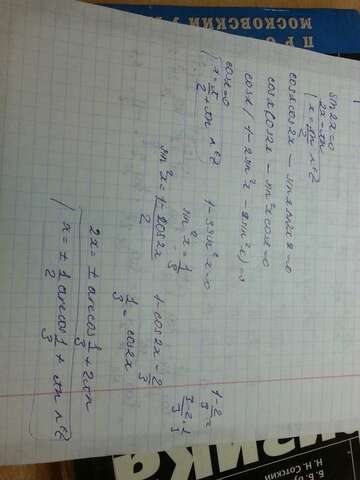 sin2x=0
2x=πn
x=πn/2 n∈Z
cosx cos2x − sinx sin2x=0
cosx cos2x − sin²x cosx=0
cosx(1−2sin²x − sin²x)=0
cosx=0
x=π/2+πn n∈Z
1−3sin²x=0
sin²x=1/3
sin²x=1−cos2x/2
1−cos2x=2/3
1/3=cos2x
1−2/3=
3−2/3=1/3
2x=±arccos1/3+2πn
x=±1/2 arccos1/3+πn n∈Z
МОСКОВСКИЙ
Н.Н. Сотский